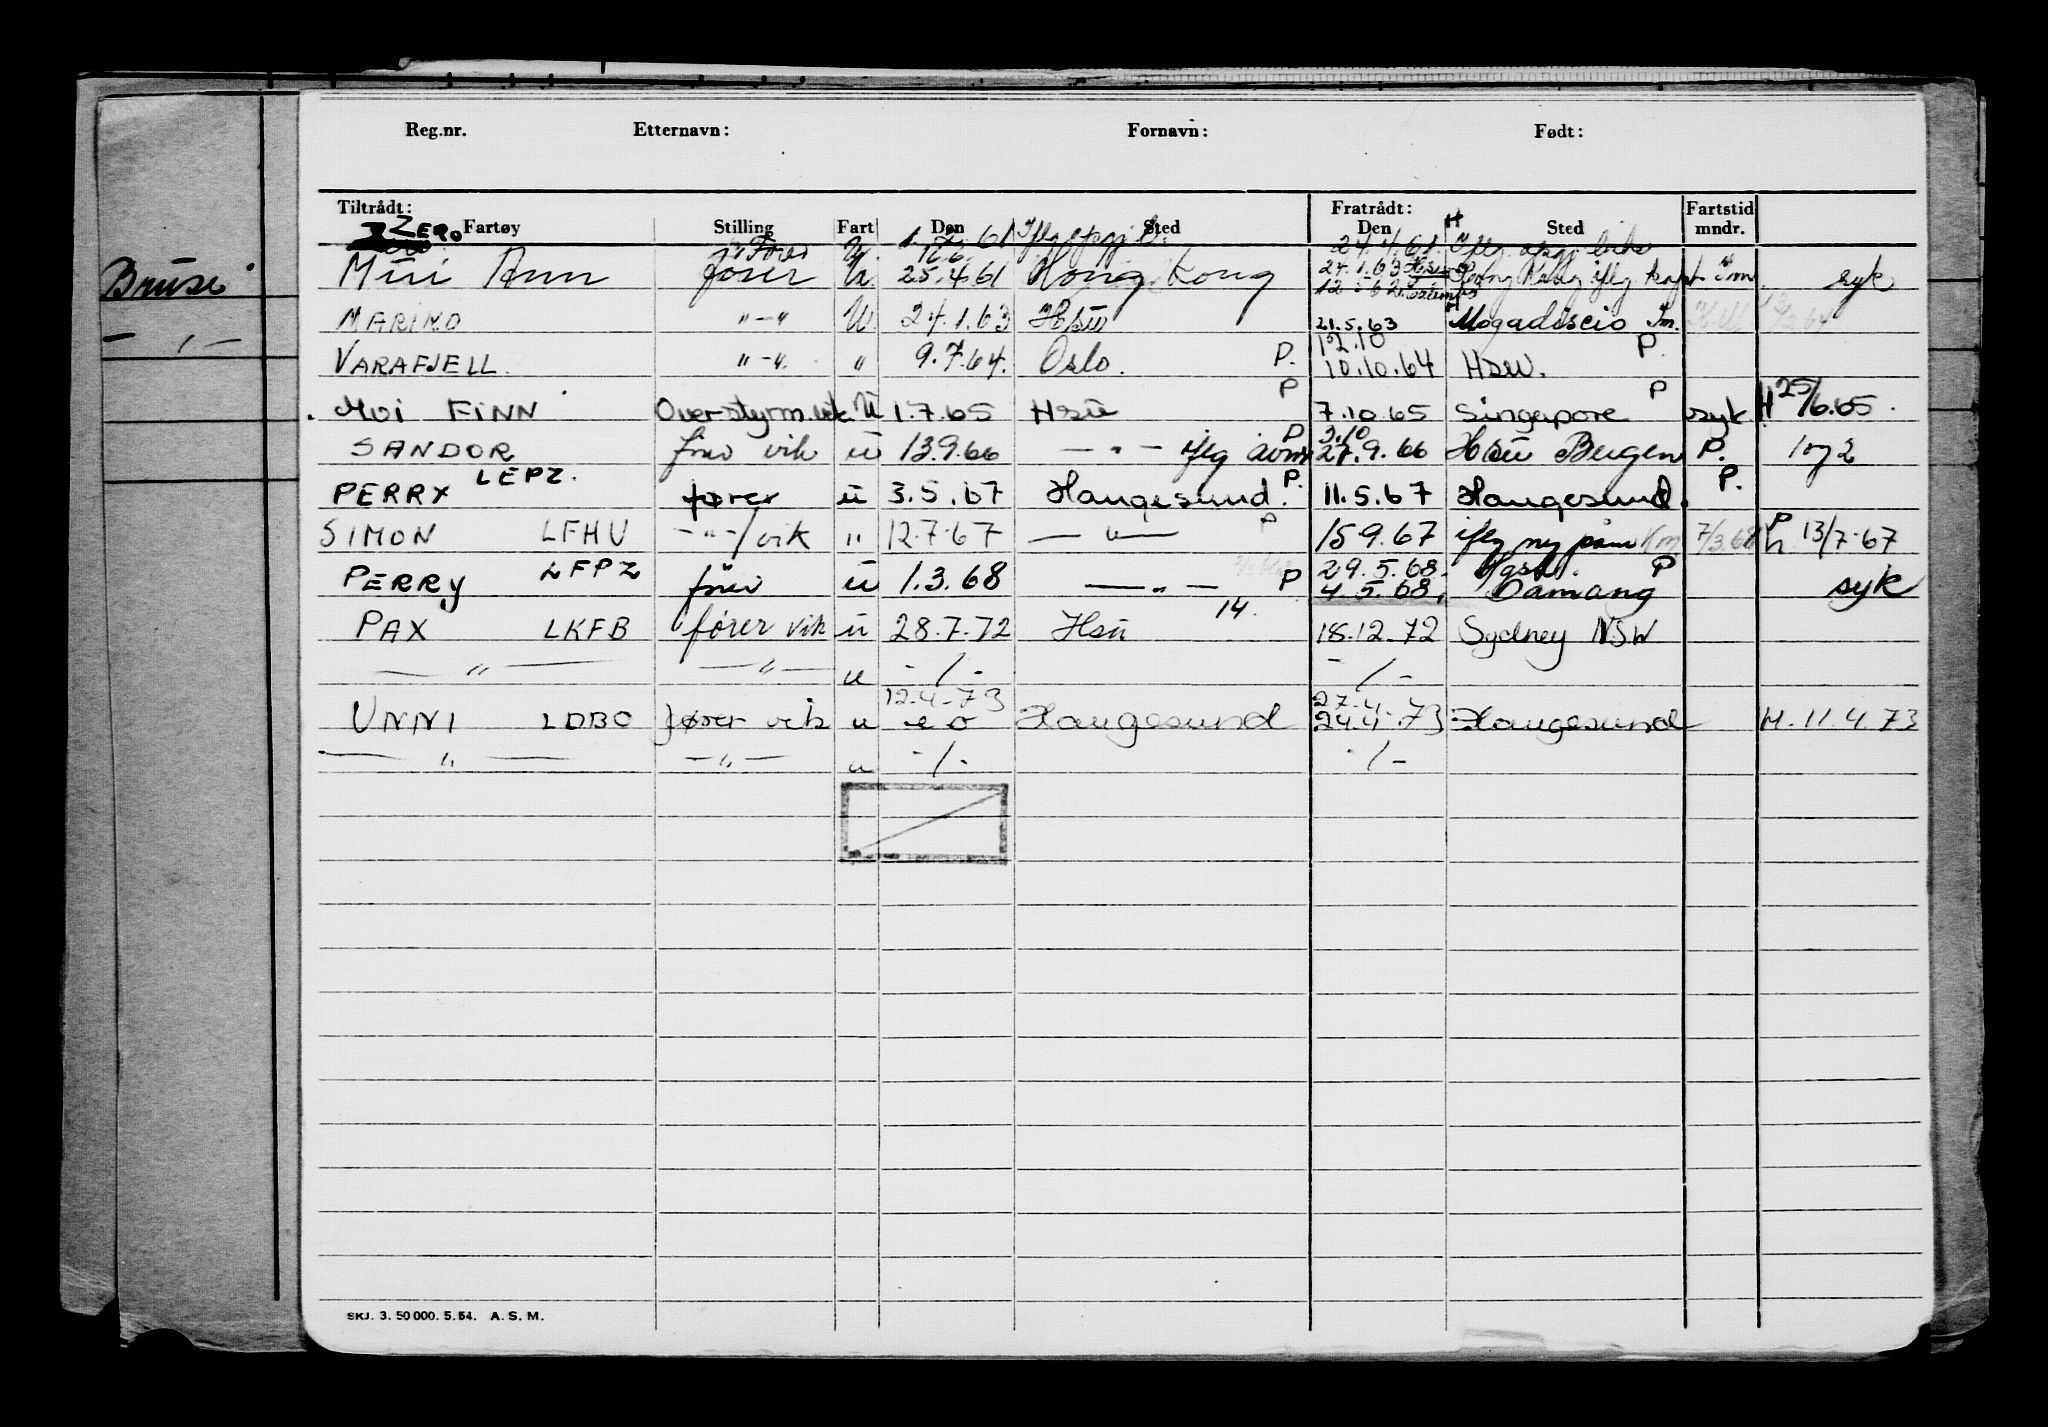 Reg.nr. Etternavn: Fornavn: Født:
Tiltrådt: Fratrådt: Fartstid
Fartøy Stilling Fart Den Sted Den Sted mndr.
ZERO Fører U. 24.4.61
Bruse
Müi Ann fører U. 25.4.61 Hong Kong 24.1.63 syk
— " — MARIKO "-" U 24.1.63 Hsu 21.5.63 Mogadiscio Im.
VARAFJELL. "-" " 9.7.64. Oslo. P. 12.10 10.10.64 Hsu. P
Moi FINN Overstyrm.vik U 1.7.65 Hsu P 7.10.65 Singapore P syk H 25/6.65.
SANDOR fører vik u 13.9.66 — " — P 3.10 27.9.66 Hsu Bergen P. 1 og 2
PERRY LEPZ. fører u 3.5.67 Haugesund. P. 11.5.67 Haugesund. P.
SIMON LFHU -"-/vik " 12.7.67 — " — P 15.9.67 7/3.68 P h 13/7-67
PERRY LFPZ fører u 1.3.68 — " — P 29.5.68. P
4.5.68, Damang syk
PAX LKFB fører vik u 28.7.72 Hsu 14. 18.12.72 Sydney NSW
— " — — " — u -/- -/-
12.4.73 27.4.
UNNI LDBO fører vik u e o Haugesund 24.4.73 Haugesund H. 11.4.73
— " — — " — u -/- -/-
SKJ. 3. 50 000. 5. 54. A. S. M.